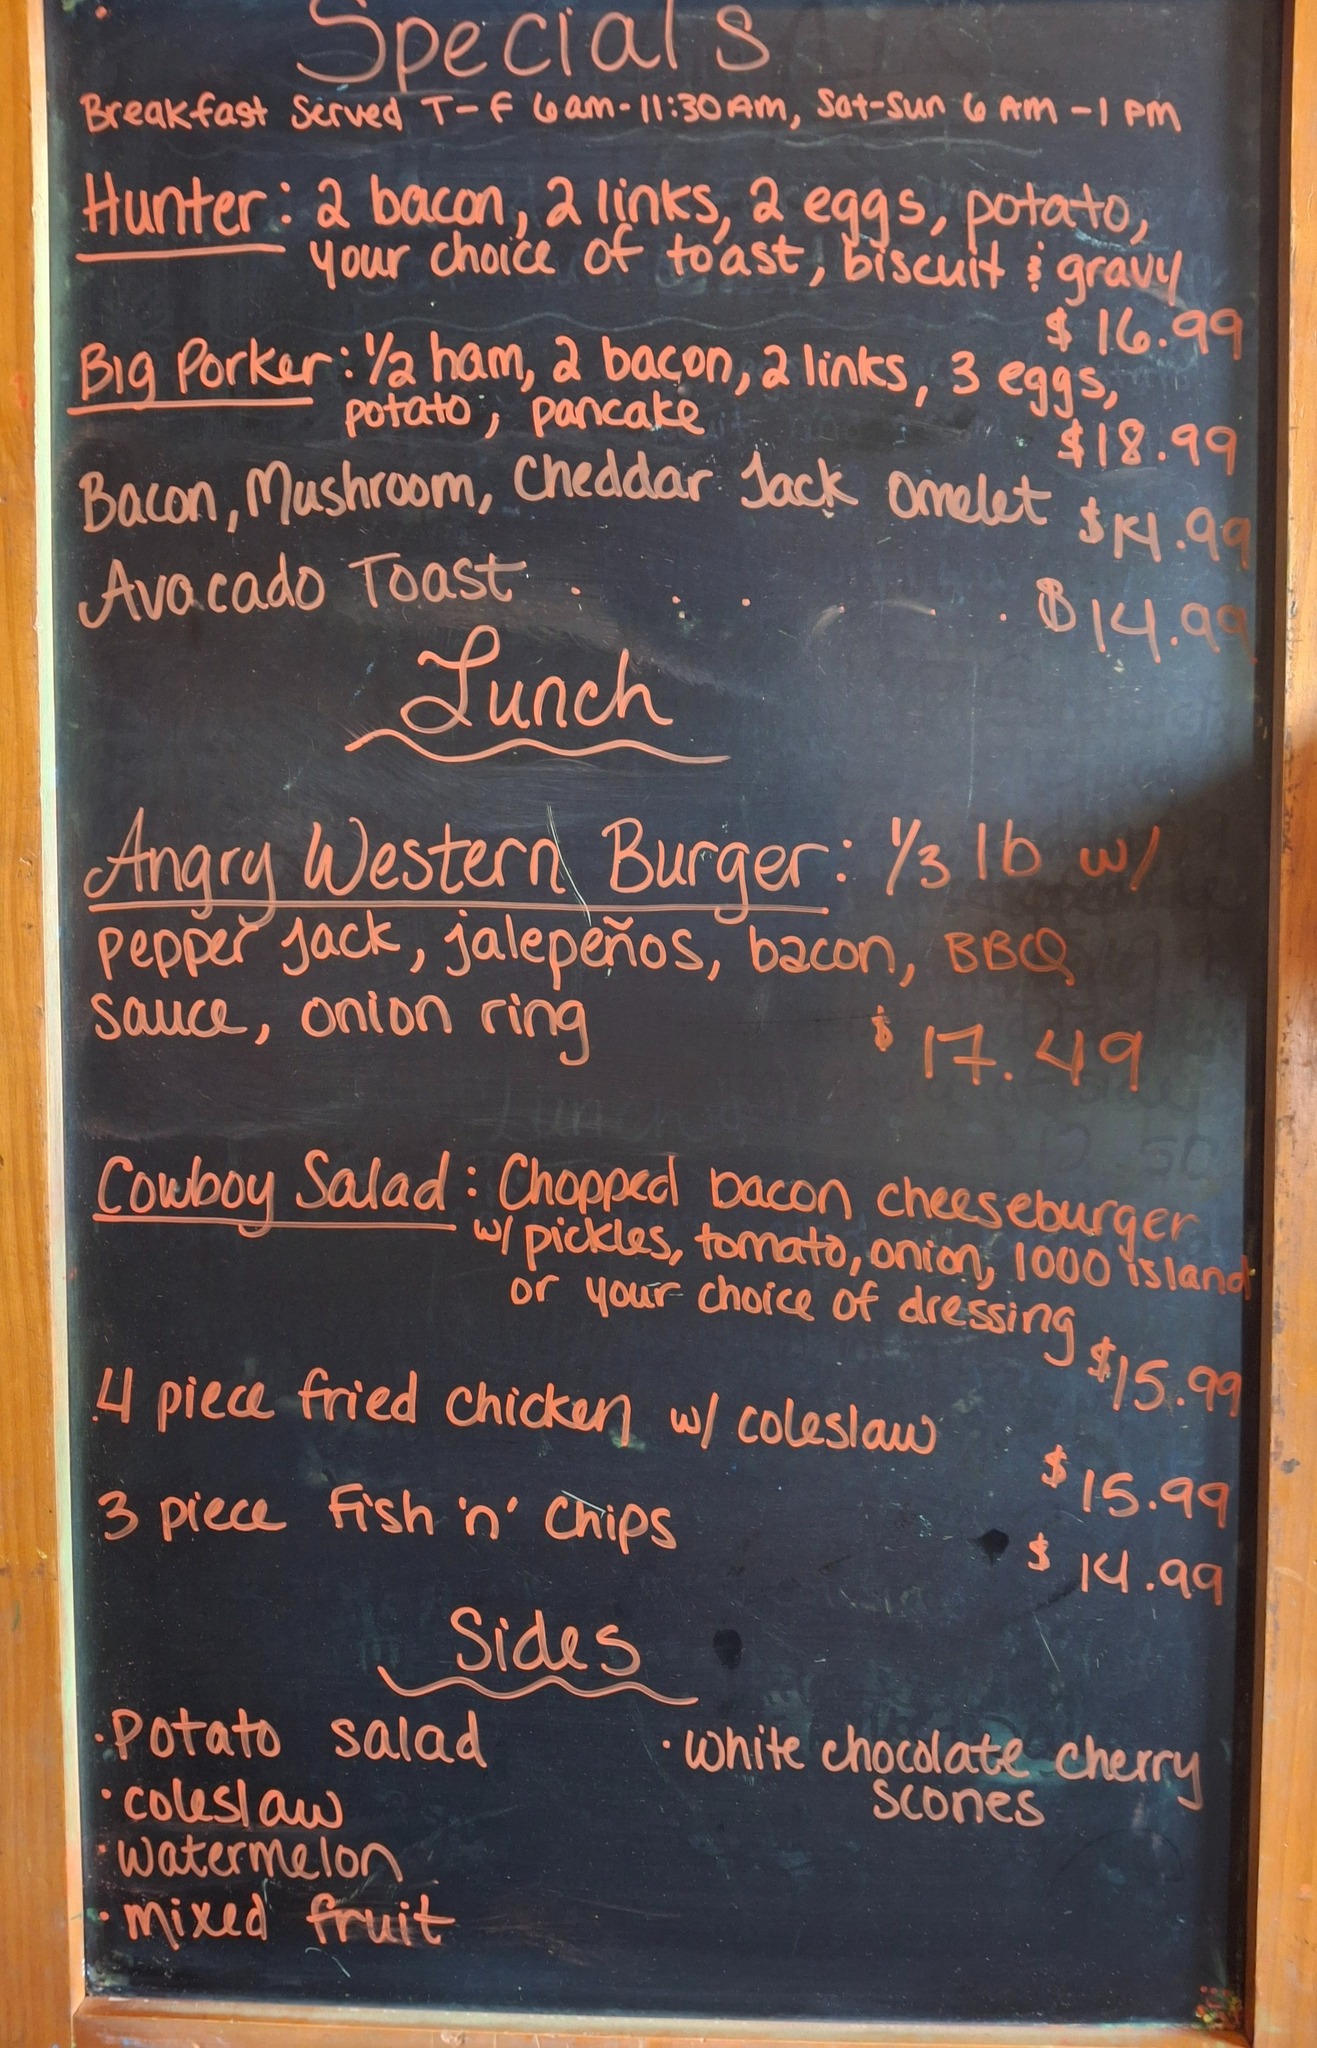 Specials
Breakfast Served T-F 6am-11:30AM, Sat-Sun 6 AM-1 PM
Hunter: 2 bacon, 2 links, 2 eggs, potato,
your choice of toast, biscuit & gravy
$16.99
Big Porker: 1/2 ham, 2 bacon, 2 links, 3 eggs,
potato, pancake
$18.99
Bacon, Mushroom, Cheddar Jack Omelet $14.99
Avocado Toast . . . . . . $14.99
Lunch
Angry Western Burger: 1/3 lb w/
pepper jack, jalepeños, bacon, BBQ
sauce, onion ring $17.49
Cowboy Salad: Chopped bacon cheeseburger
w/ pickles, tomato, onion, 1000 island
or your choice of dressing
$15.99
4 piece fried chicken w/ coleslaw
$15.99
3 piece Fish 'n' Chips
$14.99
Sides
• Potato salad
• coleslaw
• watermelon
• mixed fruit
• White chocolate cherry
scones